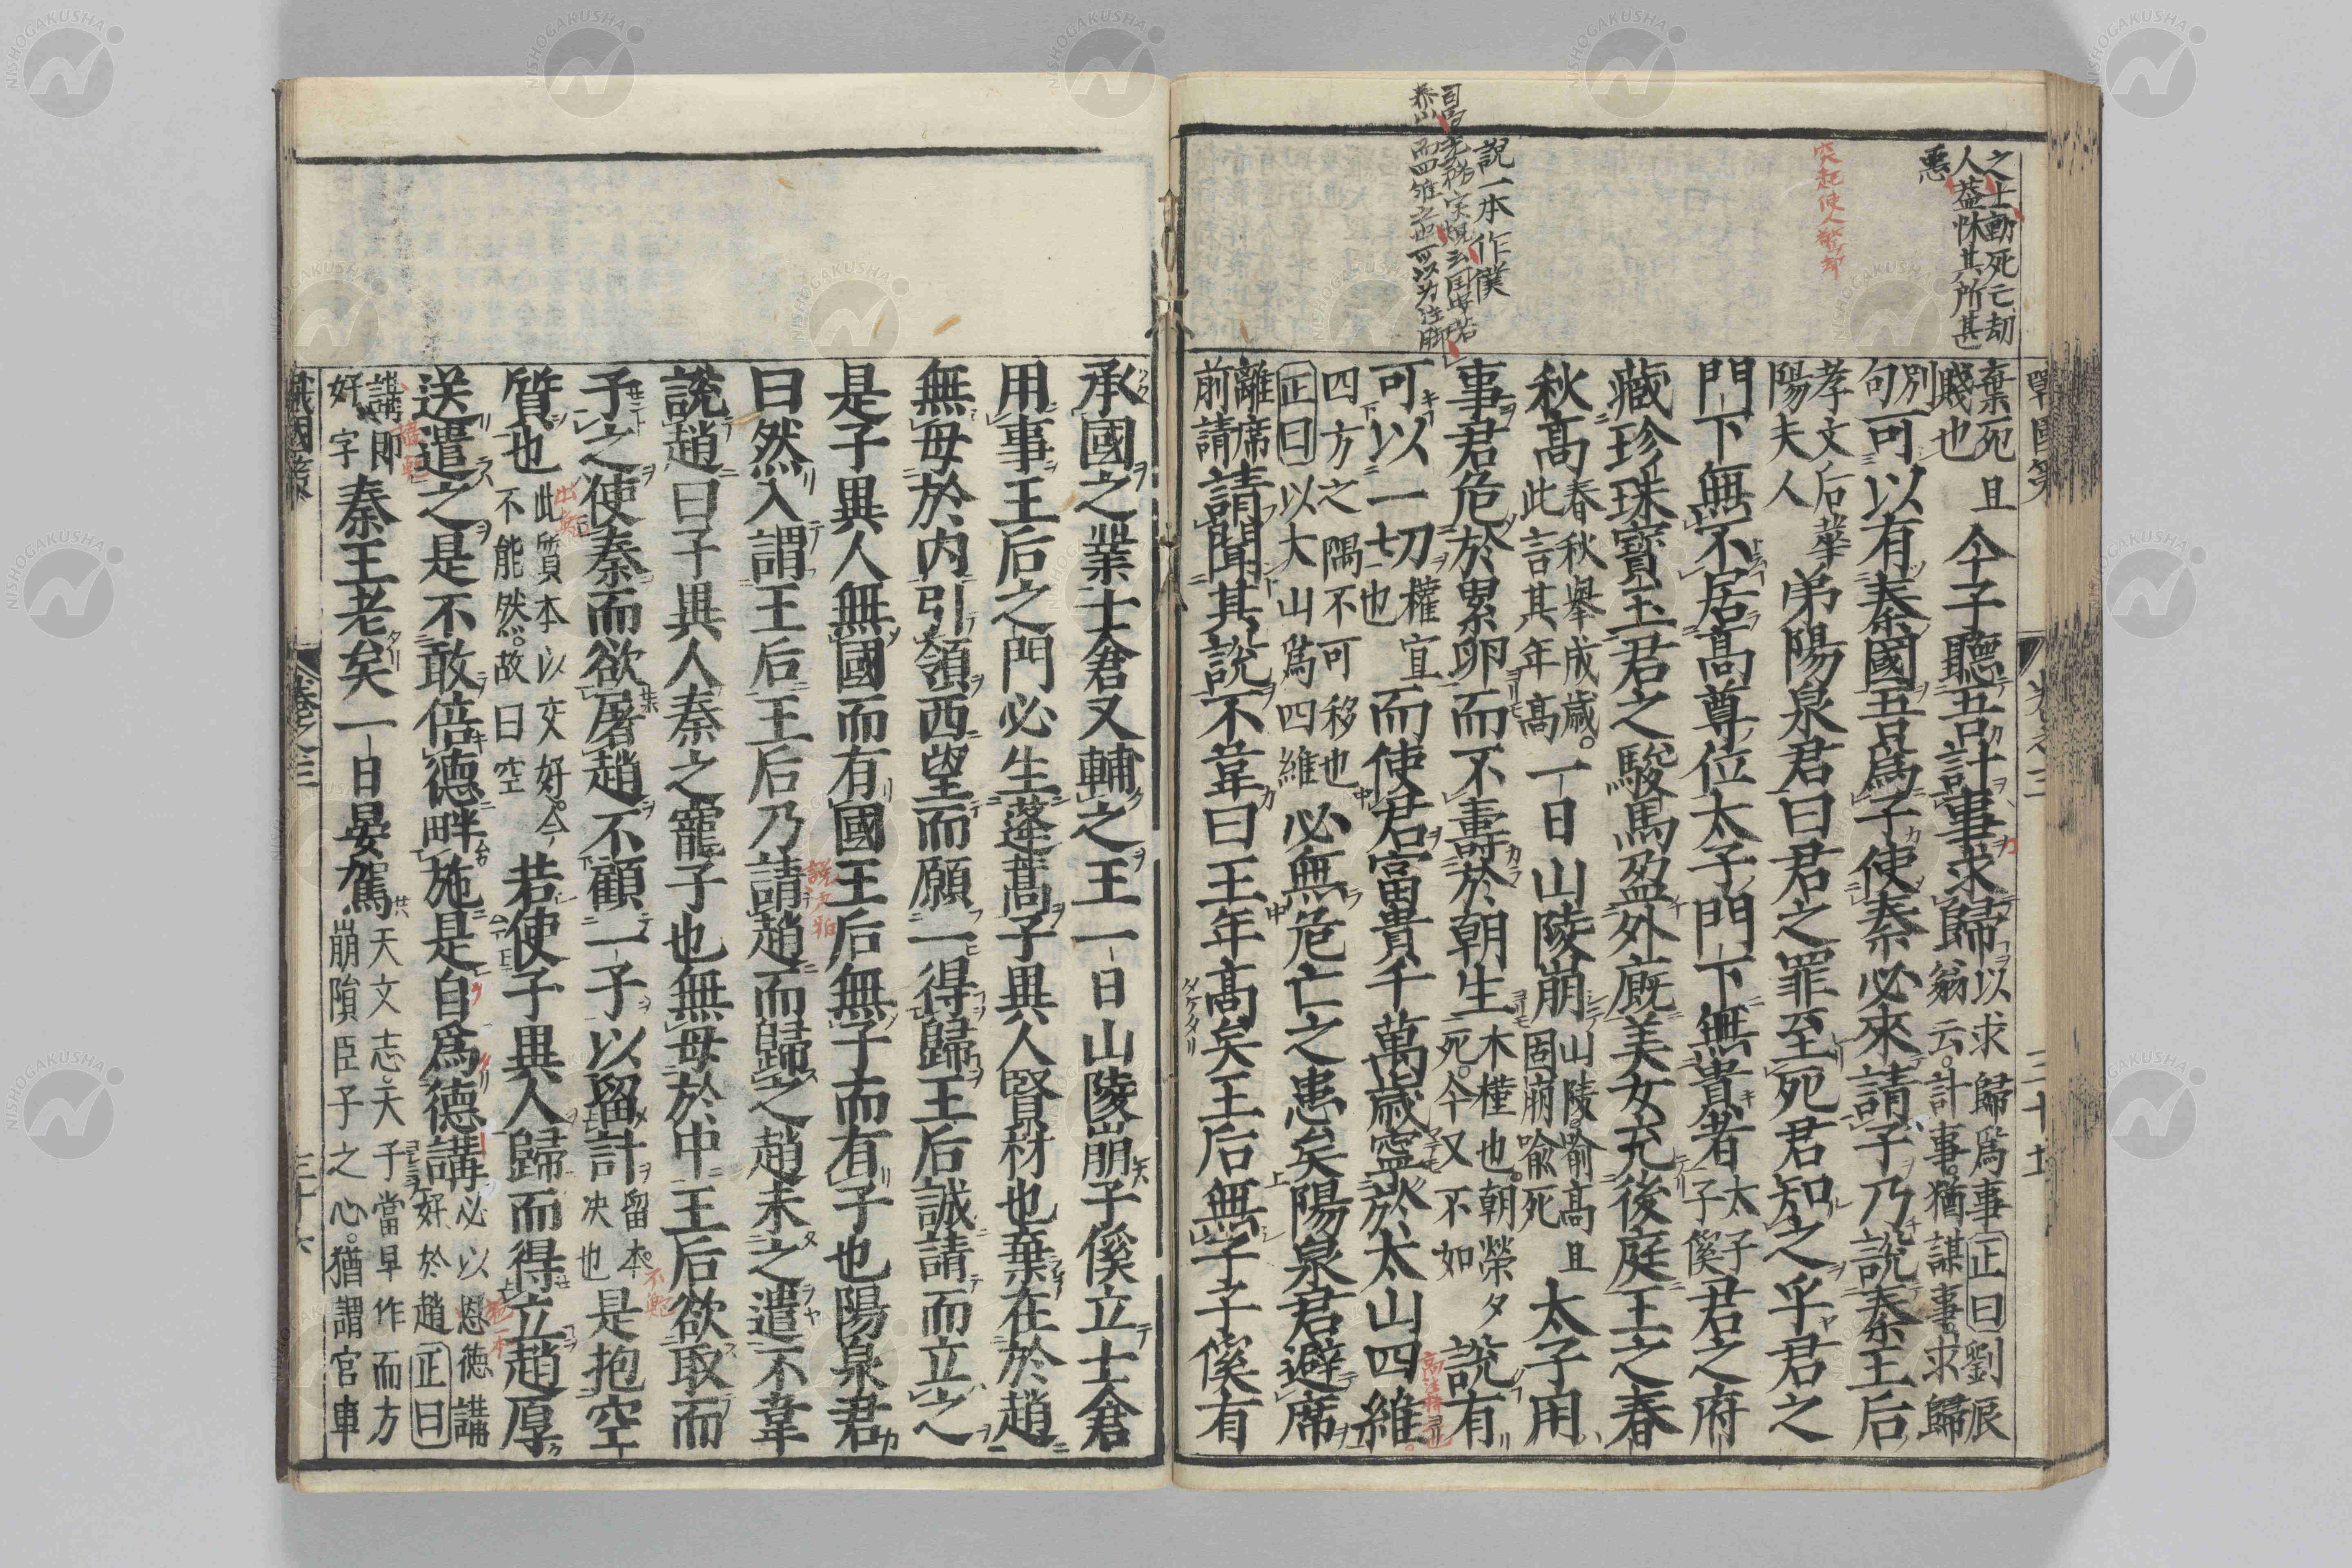 之士動死亡刧
人益怵其所甚
惡
突起使人驚却
説一本作僕
戰國策
卷之三
三十五
棄死 且
賤也
今子聽吾計事求歸
以求歸爲事正曰劉辰
翁云計事猶謀事求歸
別
句
可以有秦國吾爲子使秦必來請子乃說秦王后
孝文后華
陽夫人
弟陽泉君曰君之罪至死君知之乎君之
門下無不居高尊位太子門下無貴者
太子
子傒
君之府
藏珍珠寶玉君之駿馬盈外廐美女充後庭王之春
秋高
春秋舉成歲
此言其年高
一日山陵崩
山陵喻高且
固崩喻死
太子用
事君危於累卵而不壽於朝生
木槿也朝榮夕
死今又不如
說有
可以一切
權宜
也
而使君富貴千萬歲寧於太山四維
四方之隅不可移也
正曰以大山爲四維
必無危亡之患矣陽泉君避席
離席
前請
請聞其說不韋曰王年高矣王后無子子傒有
承國之業士倉又輔之王一日山陵崩子傒立士倉
用事王后之門必生蓬蒿子異人賢材也棄在於趙
無母於内引領西望而願一得歸王后誠請而立之
是子異人無國而有國王后無子而有子也陽泉君
曰然入謂王后王后乃請趙而歸之趙未之遣不韋
說趙曰子異人秦之寵子也無母於中王后欲取而
子之使秦而欲屠趙不顧一子以留計
留本
决也
是抱空
質也
此質本以交好今
不能然故曰空
若使子異人歸而得立趙厚
送遣之是不敢倍德畔施是自爲德講
必以恩德講
好於趙正曰
講即
好字
秦王老矣一日晏駕
天文志天子當早作而方
崩隕臣子之心猶謂官車
戰國策
卷之三
三十六